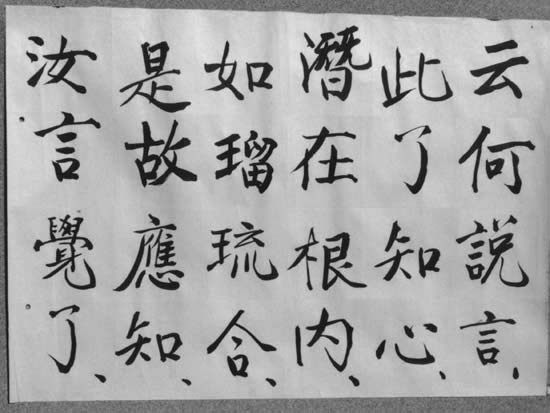 云何說言、
此了知心、
潛在根內、
如瑠琉合、
是故應知、
汝言覺了、